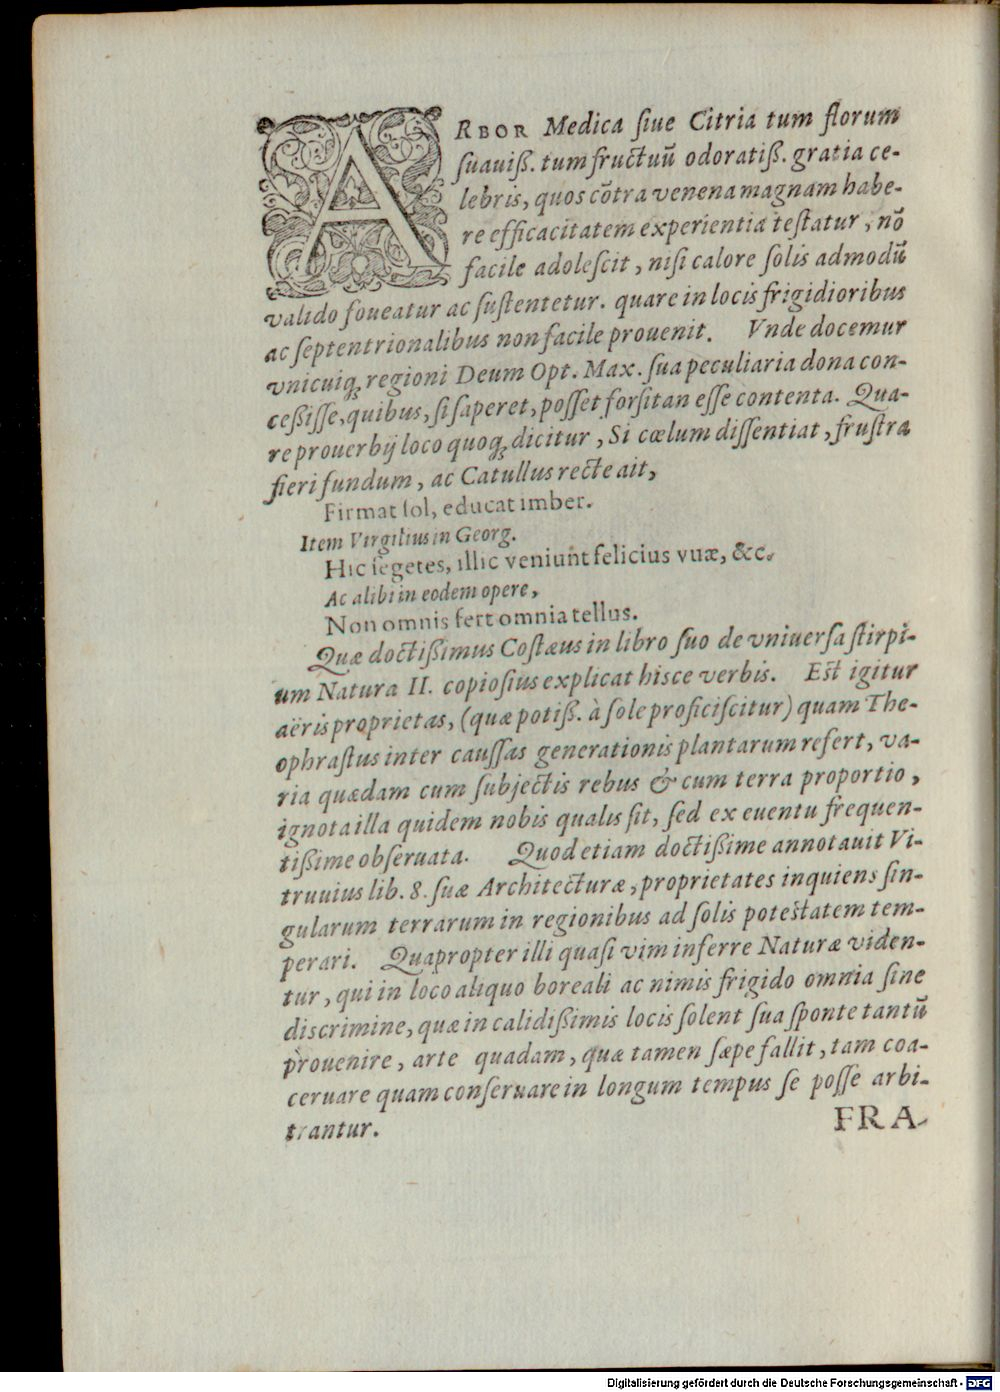 ARBOR Medica ſiue Citria tum florum
ſuauiß. tum fructuũ odoratiß. gratia ce-
lebris, quos cõtra venena magnam habe-
re efficacitatem experientia teſtatur, nõ
facile adoleſcit, niſi calore ſolis admodũ
valido foueatur ac ſuſtentetur. quare in locis frigidioribus
ac ſeptentrionalibus non facile prouenit. Vnde docemur
vnicuiq; regioni Deum Opt. Max. ſua peculiaria dona con-
ceßiſſe, quibus, ſi ſaperet, poſſet forſitan eſſe contenta. Qua-
re prouerbij loco quoq; dicitur, Si cœlum diſſentiat, fruſtra
fieri fundum, ac Catullus recte ait,
Firmat ſol, educat imber.
Item Virgilius in Georg.
Hic ſegetes, illic veniunt felicius vuæ, &c.
Ac alibi in eodem opere,
Non omnis fert omnia tellus.
Quæ doctißimus Coſtæus in libro ſuo de vniuerſa ſtirpi-
um Natura II. copioſius explicat hisce verbis. Eſt igitur
aëris proprietas, (quæ potiß. à ſole proficiſcitur) quam The-
ophraſtus inter cauſſas generationis plantarum refert, va-
ria quædam cum ſubjectis rebus & cum terra proportio,
ignota illa quidem nobis qualis ſit, ſed ex euentu frequen-
tißime obſeruata. Quod etiam doctißime annotauit Vi-
truuius lib. 8. ſuæ Architecturæ, proprietates inquiens ſin-
gularum terrarum in regionibus ad ſolis poteſtatem tem-
perari. Quapropter illi quaſi vim inferre Naturæ viden-
tur, qui in loco aliquo boreali ac nimis frigido omnia ſine
discrimine, quæ in calidißimis locis ſolent ſua ſponte tantũ
prouenire, arte quadam, quæ tamen ſæpe fallit, tam coa-
ceruare quam conſeruare in longum tempus ſe poſſe arbi-
trantur.
FRA-
Digitalisierung gefördert durch die Deutsche Forschungsgemeinschaft - DFG